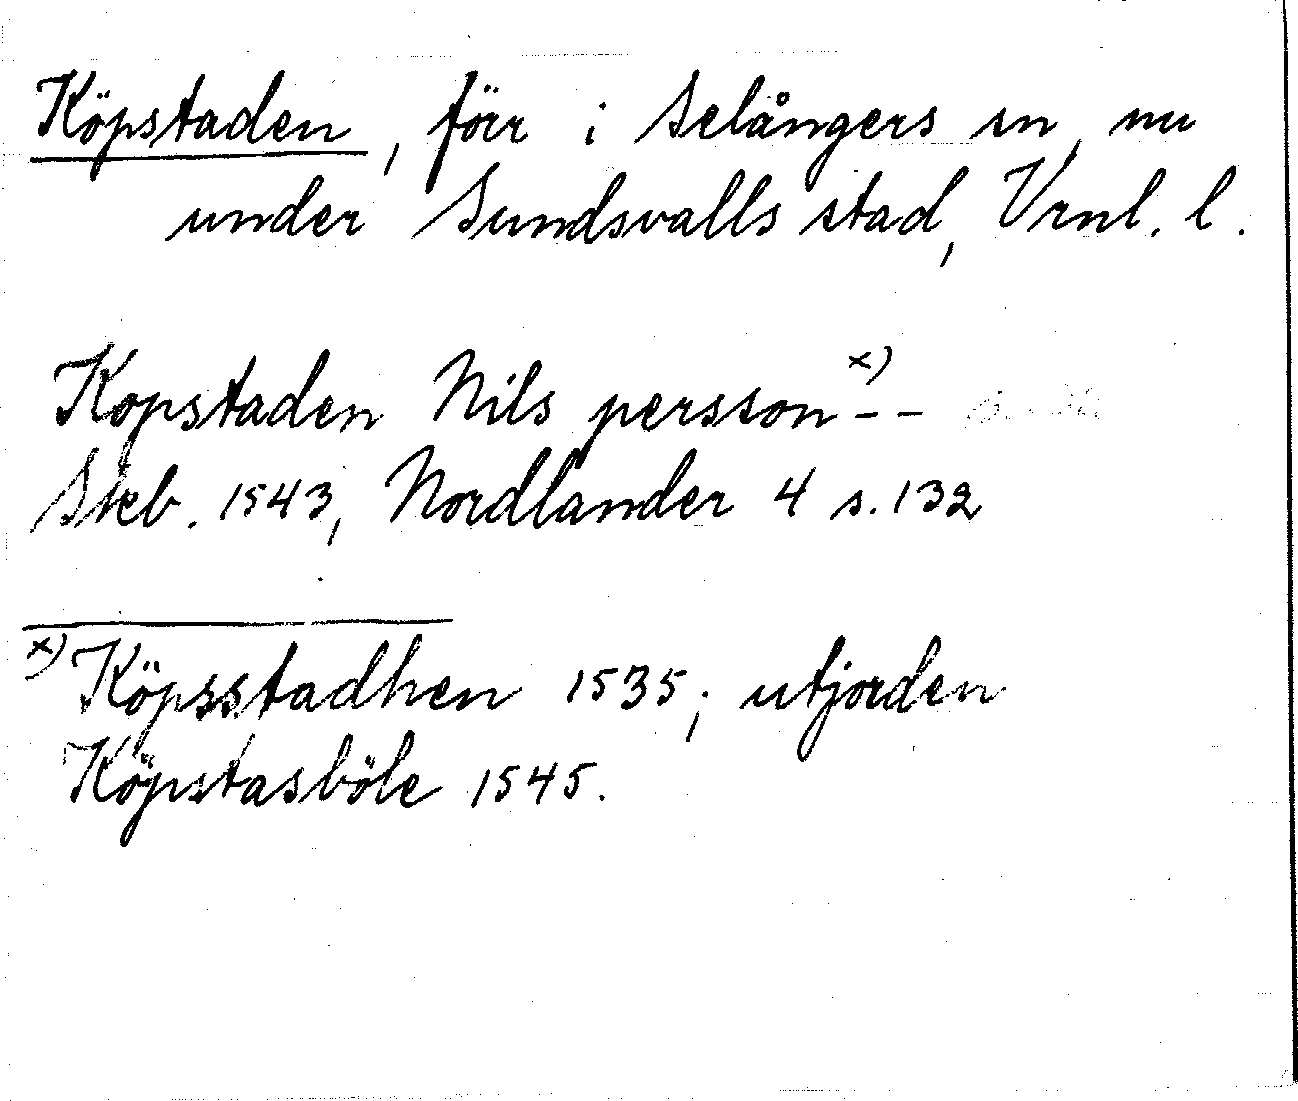 Köpstaden, förr i Selångers sn, nu
under Sundsvalls stad, Vrnl. l.
Kopstaden Nils persson x) - -
Skb. 1543, Nordlander 4 s. 132
x) Köpsstadhen 1535; utjorden
Köpstasböle 1545.